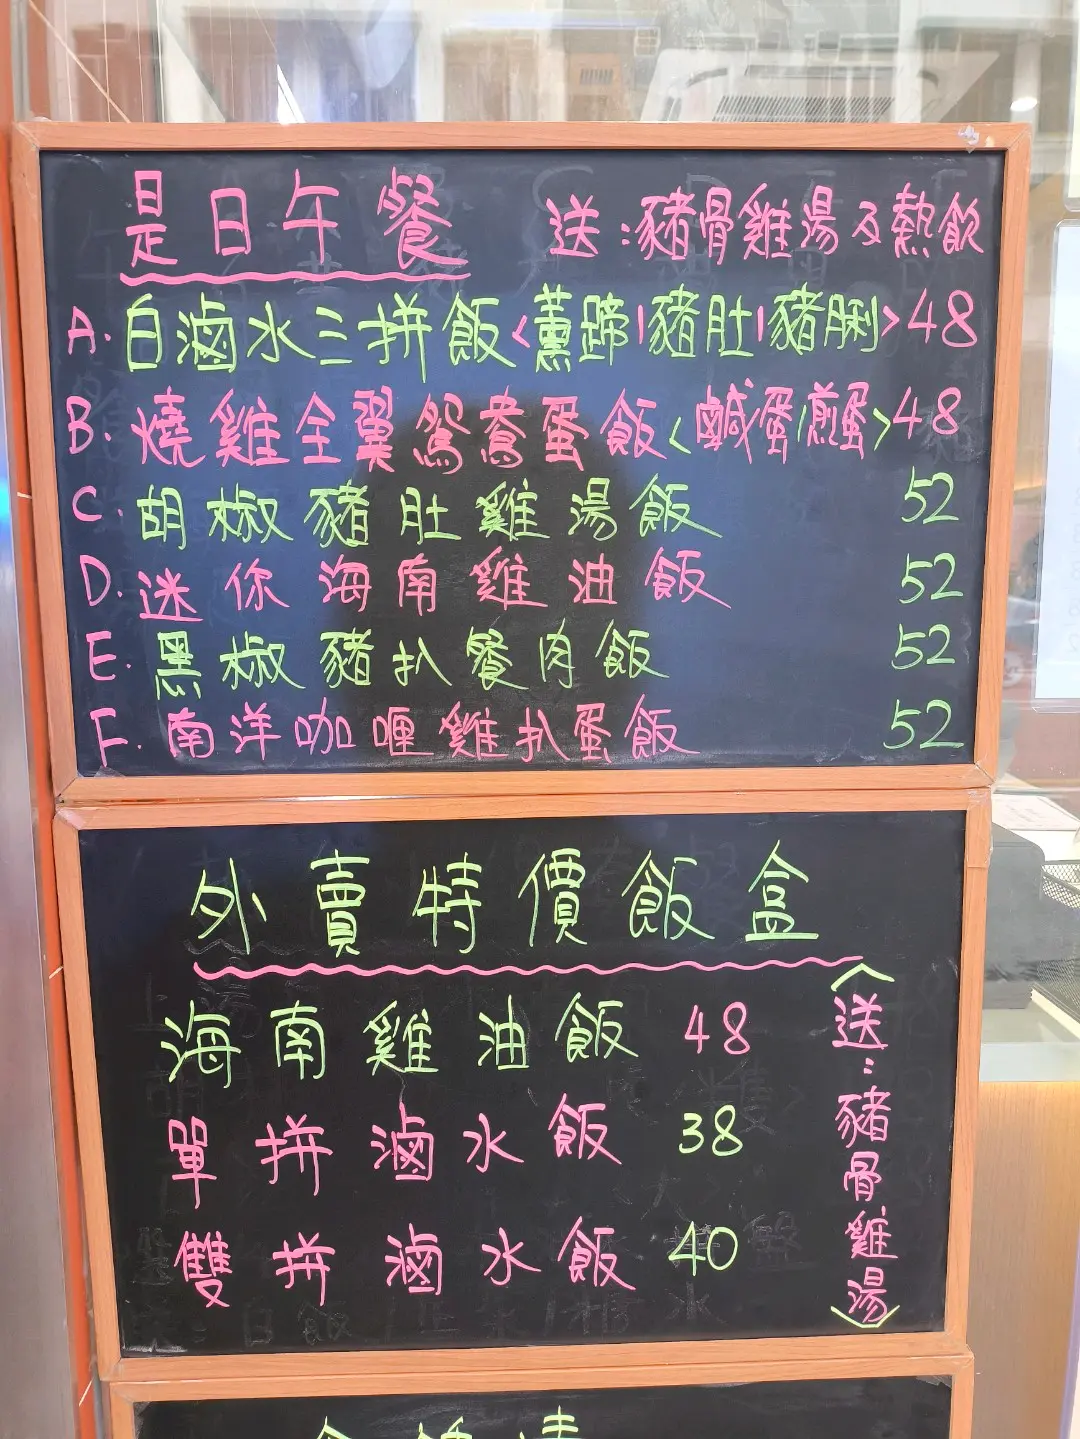 是日午餐 送:豬骨雞湯及熱飲
A. 白滷水三拼飯<薰蹄|豬肚|豬脷> 48
B. 燒雞全翼鴛鴦蛋飯<鹹蛋/煎蛋> 48
C. 胡椒豬肚雞湯飯 52
D. 迷你海南雞油飯 52
E. 黑椒豬扒餐肉飯 52
F. 南洋咖喱雞扒蛋飯 52
外賣特價飯盒
海南雞油飯 48
單拼滷水飯 38
雙拼滷水飯 40
<送:豬骨雞湯>